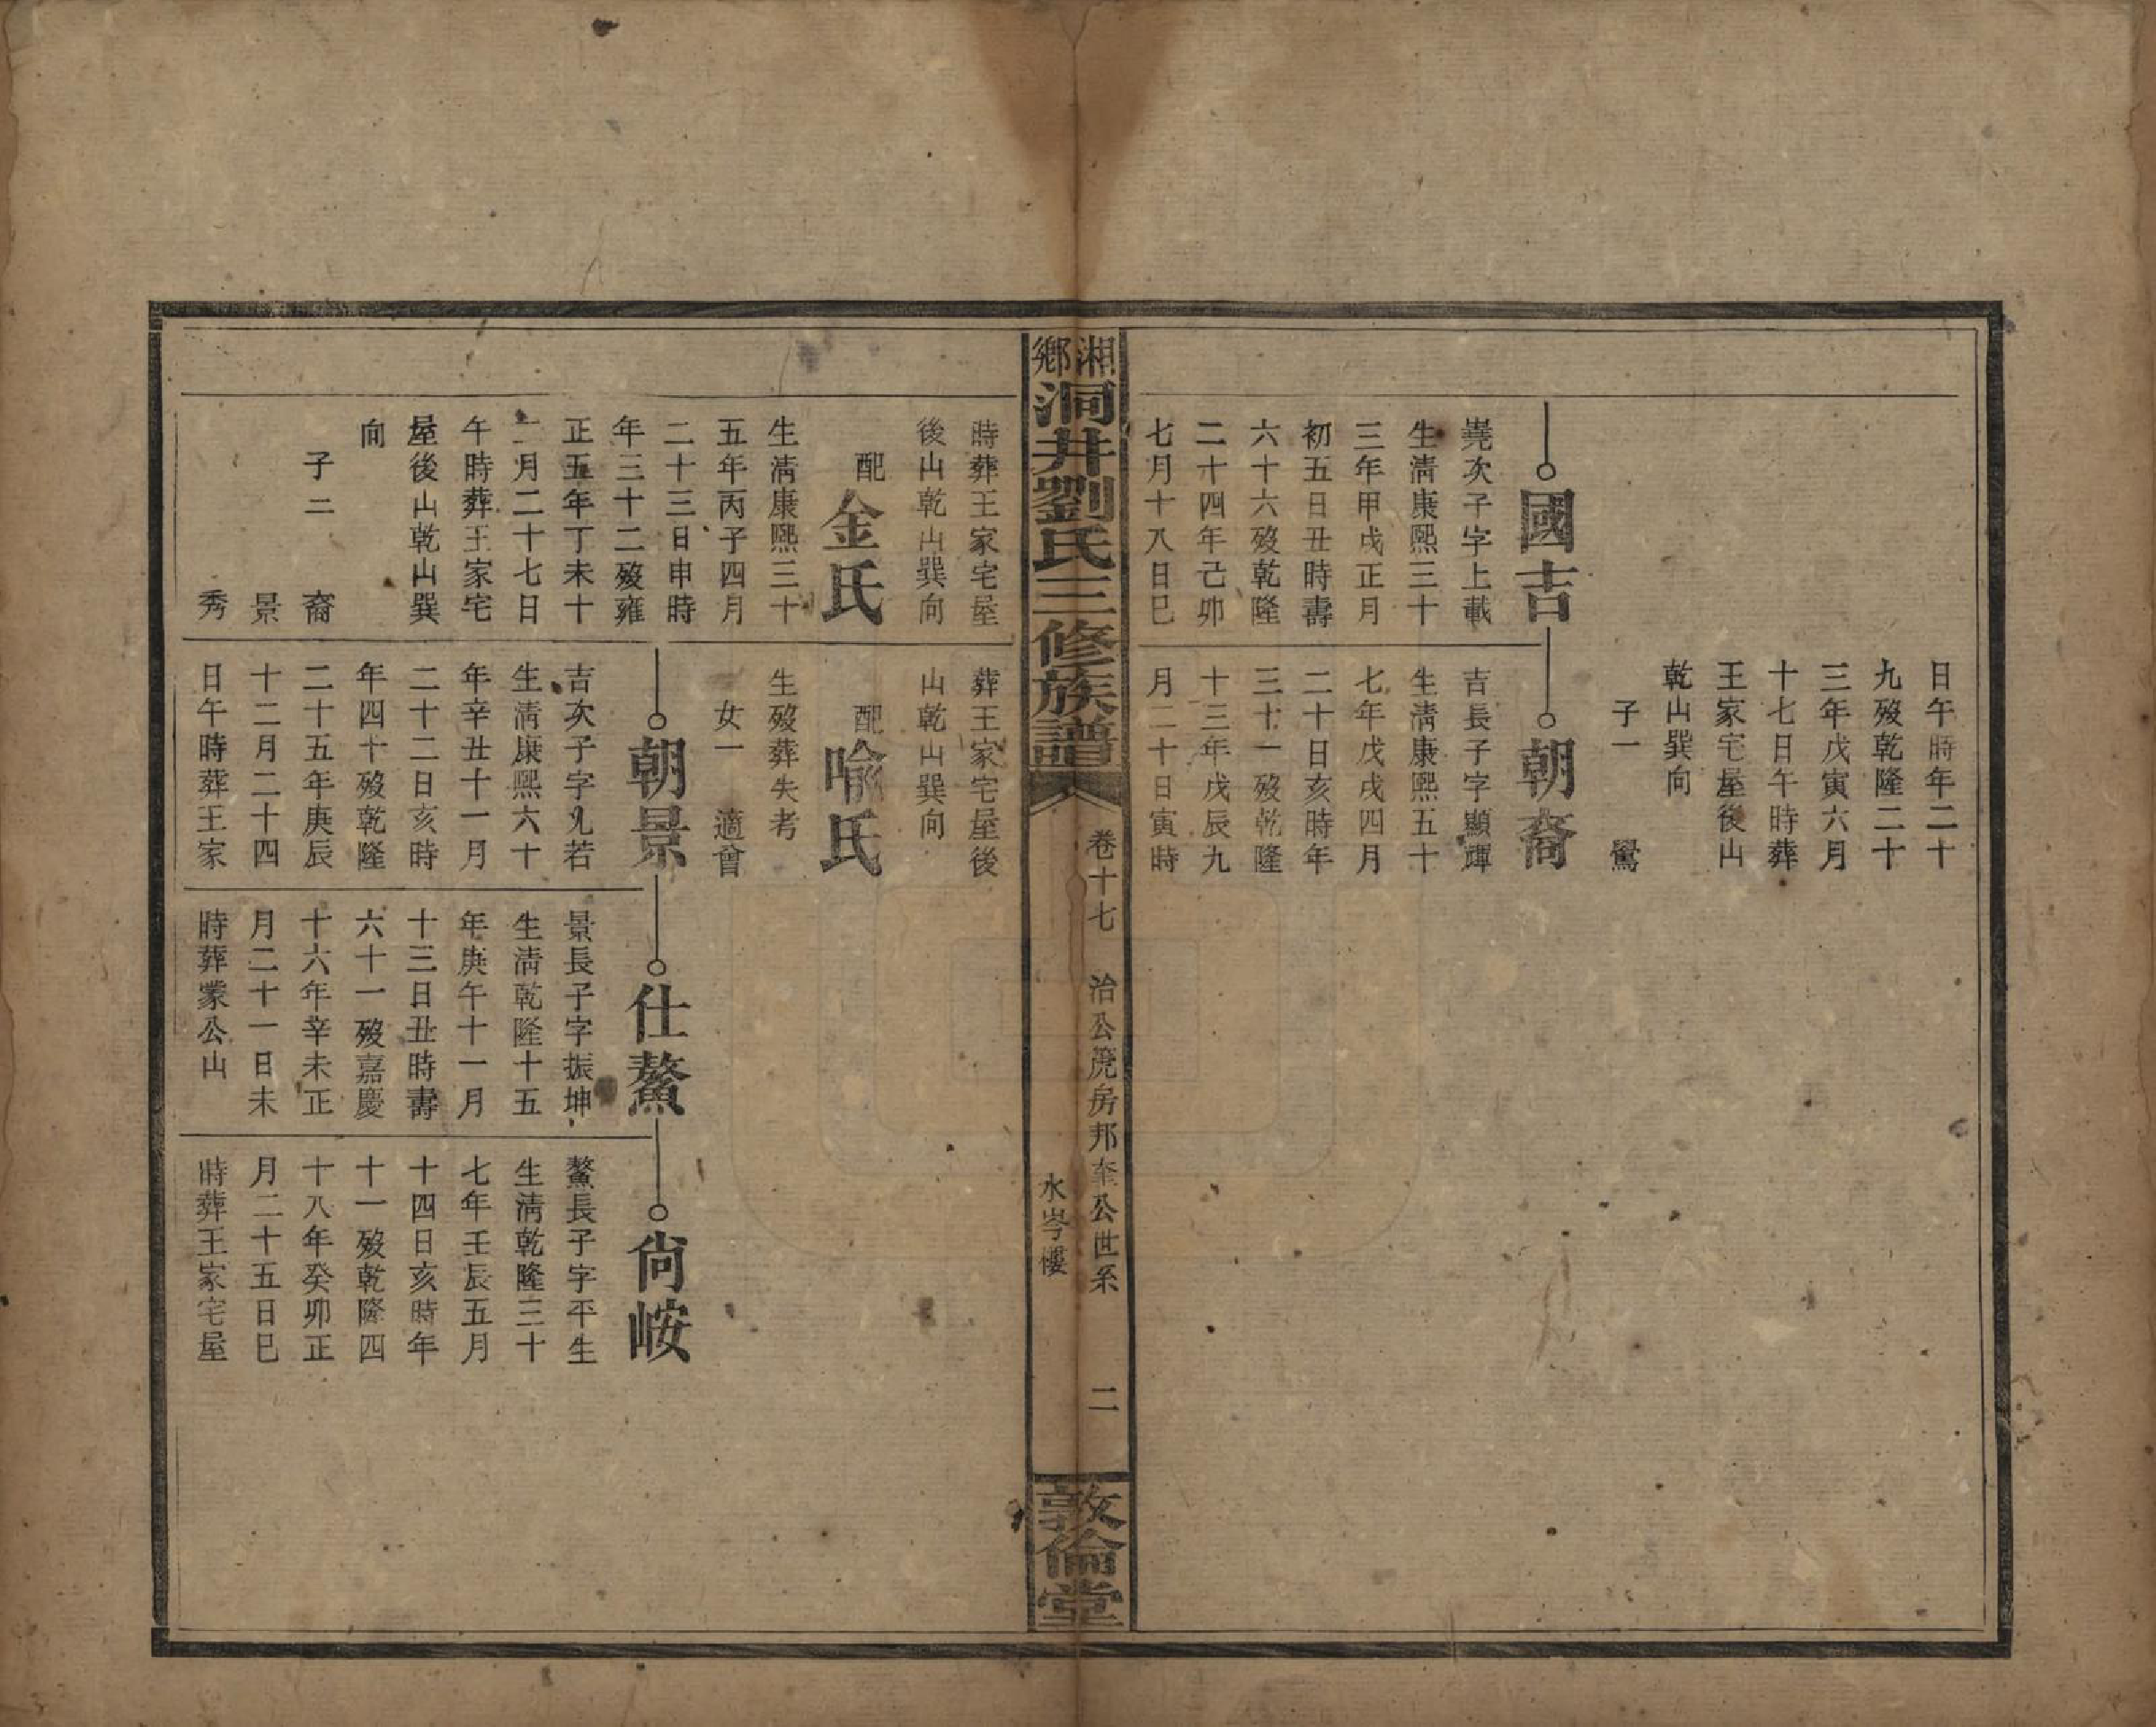 日午時年二十
九歿乾隆二十
三年戊寅六月
十七日午時葬
王家宅屋後山
乾山巽向
子一　鸞
國吉
嶤次子字上載
生清康熙三十
三年甲戌正月
初五日丑時壽
六十六歿乾隆
二十四年己卯
七月十八日巳
朝裔
吉長子字顯輝
生清康熙五十
七年戊戌四月
二十日亥時年
三十一歿乾隆
十三年戊辰九
月二十日寅時
湘鄉洞井劉氏三修族譜
卷十七　治公房邦奎公世系
水岑樓
二
敦倫堂
時葬王家宅屋
後山乾山巽向
配金氏
生清康熙三十
五年丙子四月
二十三日申時
年三十二歿雍
正五年丁未十
二月二十七日
午時葬王家宅
屋後山乾山巽
向
子二　裔
景
秀
葬王家宅屋後
山乾山巽向
配喻氏
生歿葬失考
女一　適曾
朝景
吉次子字允若
生清康熙六十
年辛丑十一月
二十二日亥時
年四十歿乾隆
二十五年庚辰
十二月二十四
日午時葬王家
仕鰲
景長子字振坤
生清乾隆十五
年庚午十一月
十三日丑時壽
六十一歿嘉慶
十六年辛未正
月二十一日未
時葬公山
尙峖
鰲長子字平生
生清乾隆三十
七年壬辰五月
十四日亥時年
十一歿乾隆四
十八年癸卯正
月二十五日巳
時葬王家宅屋